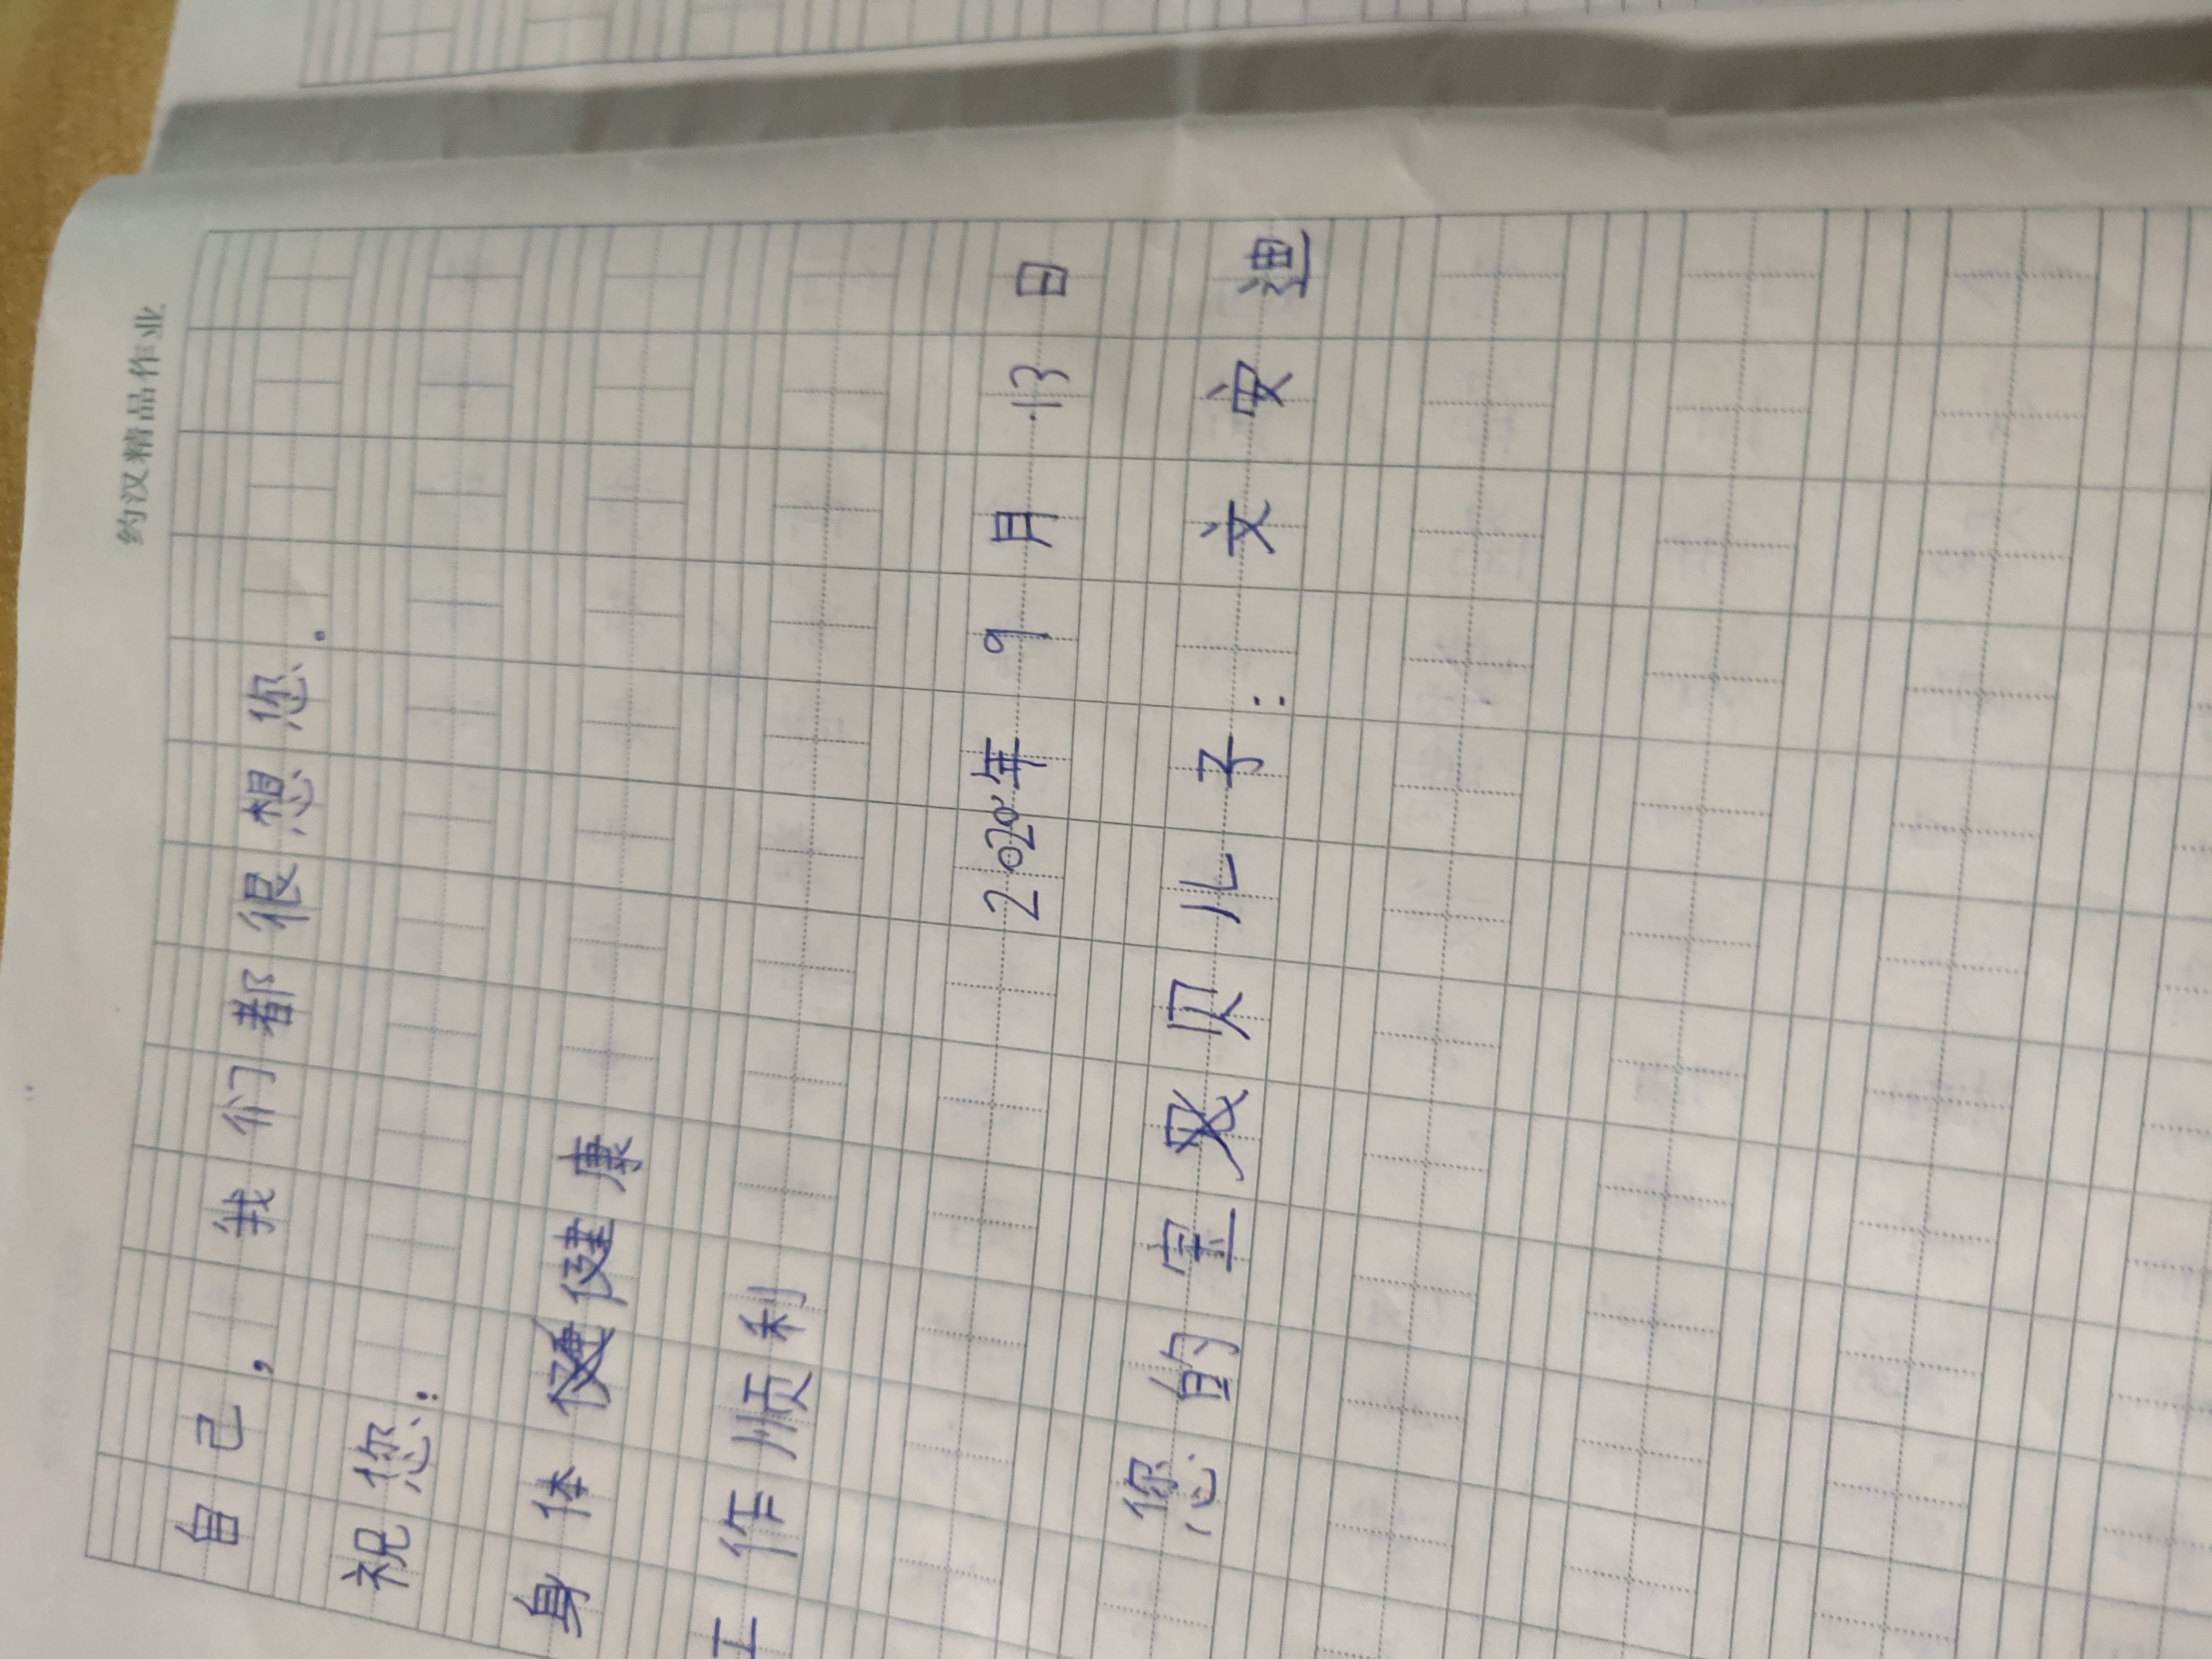 约汉精品作业
自己,我们都很想您.
祝您:
身体健康
工作顺利
2020年9月13日
您的宝贝儿子:文安迪